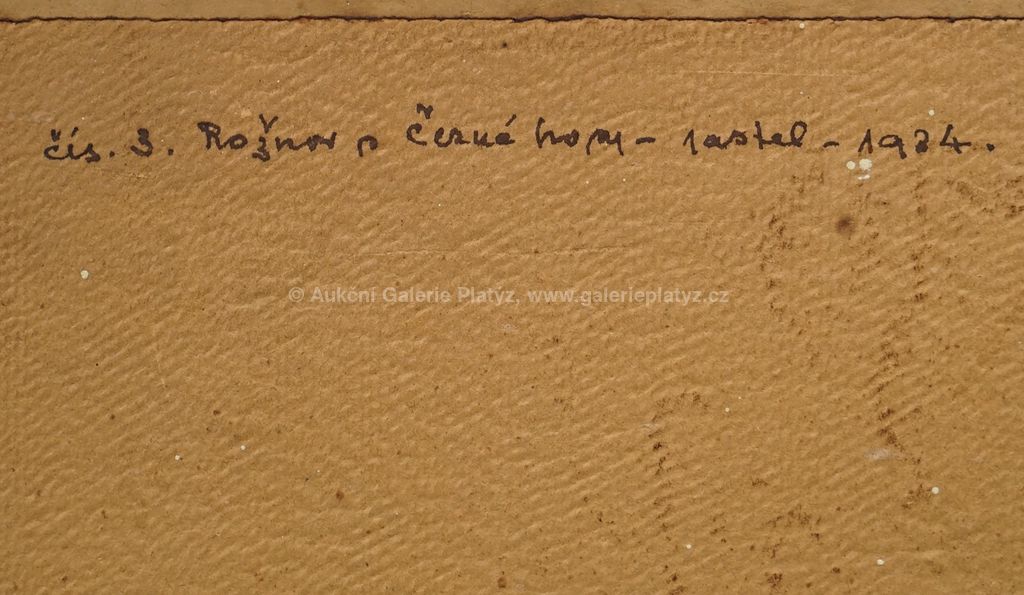 čís. 3. Rožnov p Černé hory - pastel - 1934.
© Aukční Galerie Platýz, www.galerieplatyz.cz